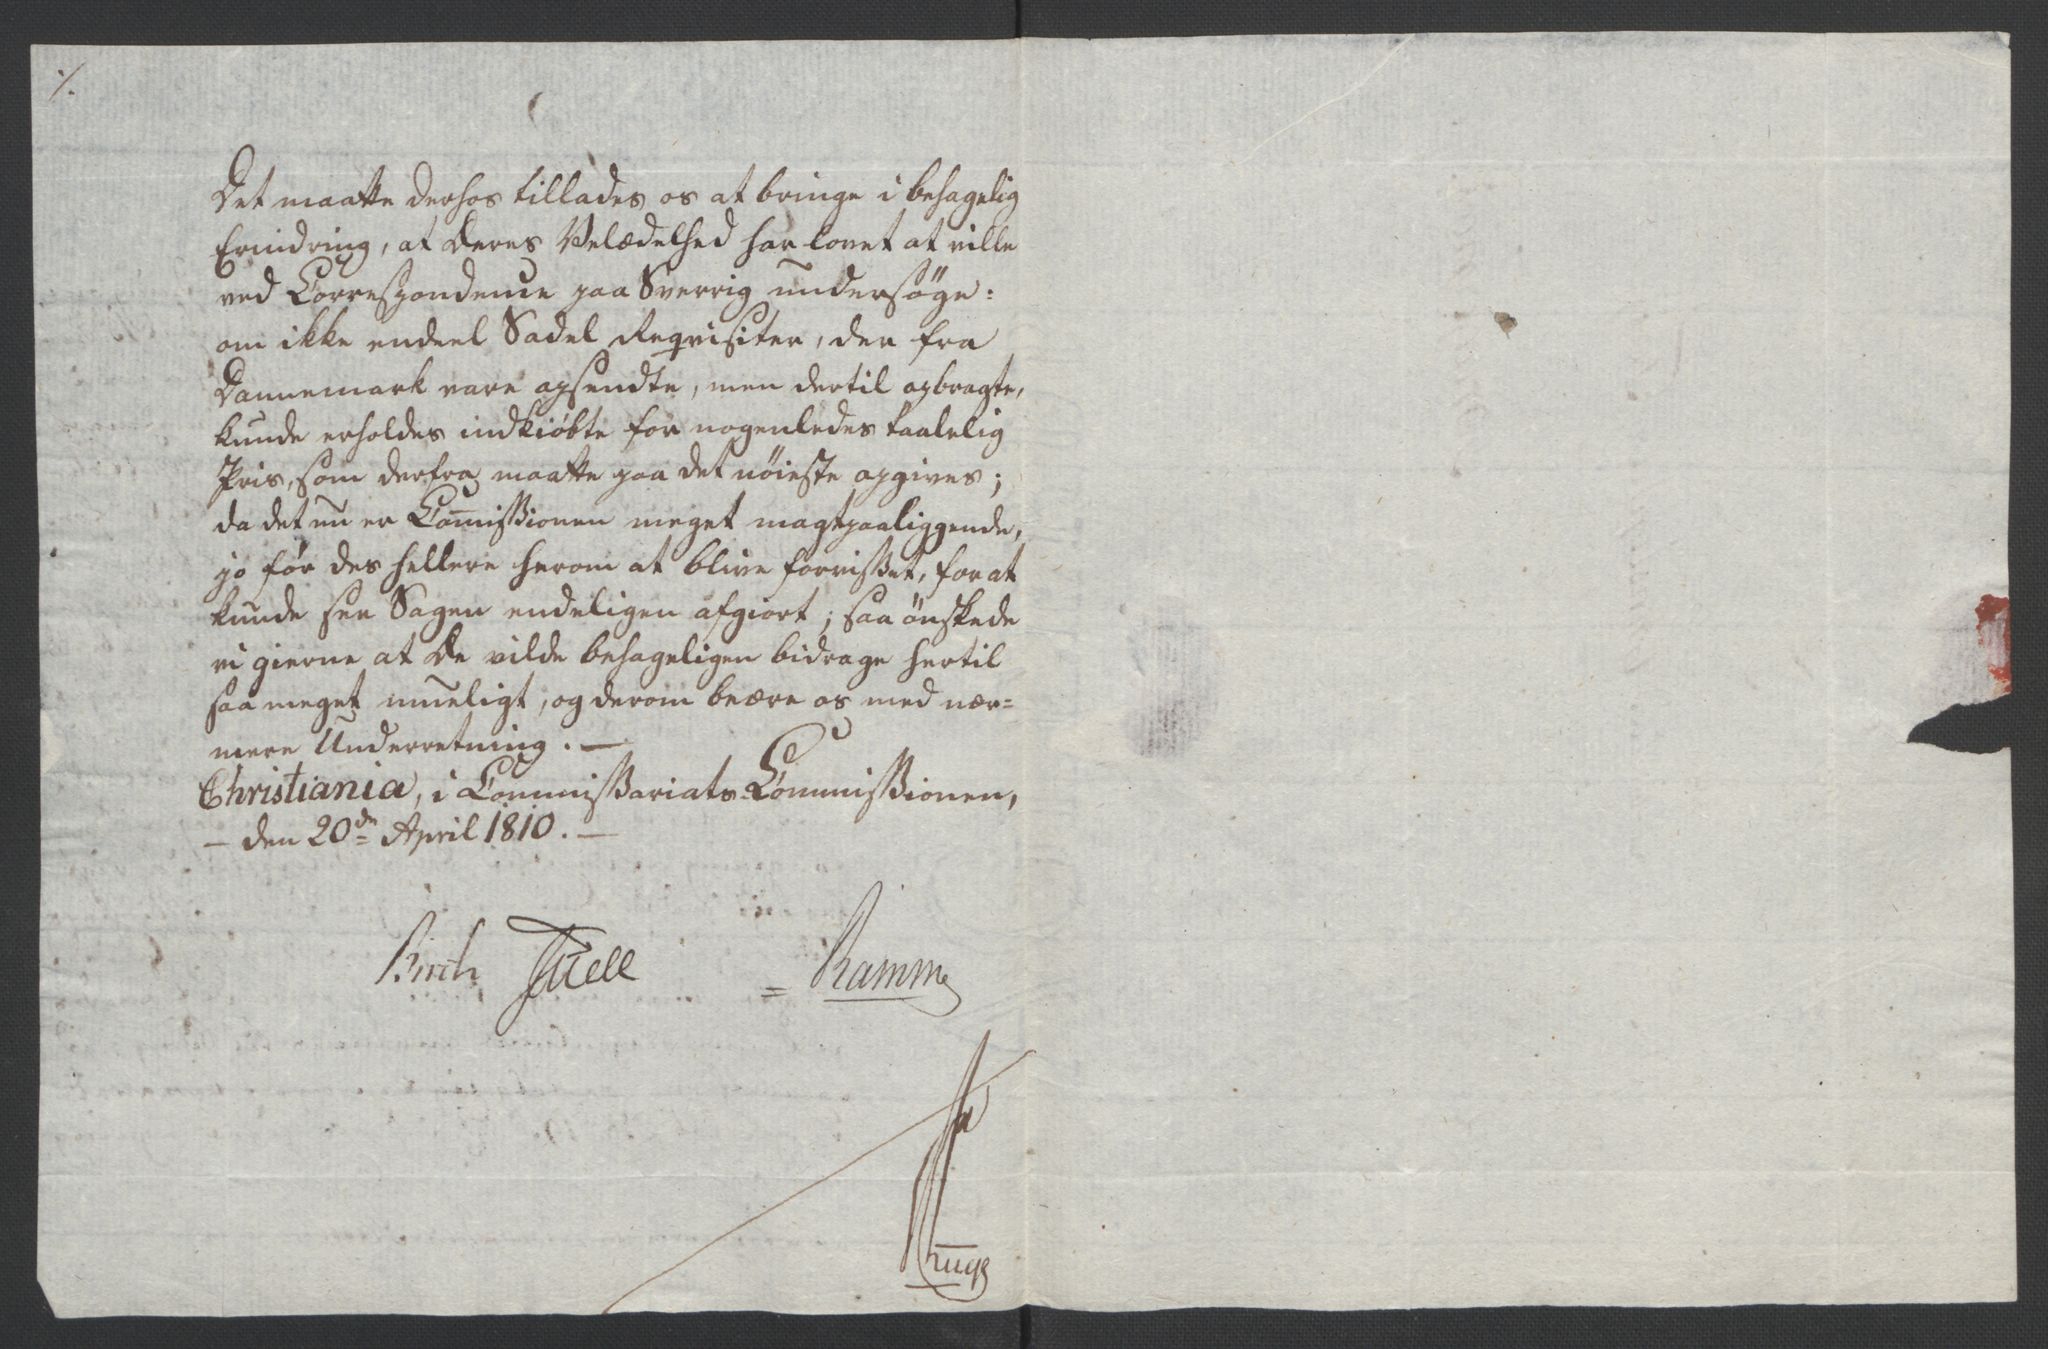 ·/.
Det maatte derhos tillades os at bringe i behagelig
Erindring, at Deres Velædelhed har lovet at ville
ved Correspondence paa Sverrig undersöge:
om ikke endeel Sadel Reqvisiter, der fra
Dannemark vare opsendte, men dertil opbragte,
kunde erholdes indkiöbte for nogenledes taalelig
Priis, som derfra maatte paa det nöieste opgives;
da det nu er Com̅issionen meget magtpaaliggende,
jo för des hellere herom at blive forvisset, for at
kunde see Sagen endeligen afgiort; saa önskede
vi gierne at De vilde behageligen bidrage hertil
saa meget mueligt, og derom beære os med nær=
mere Underretning. —
Christiania, i Commissariats-Commissionen,
— den 20de April 1810. —
Birch Juell = Ramm